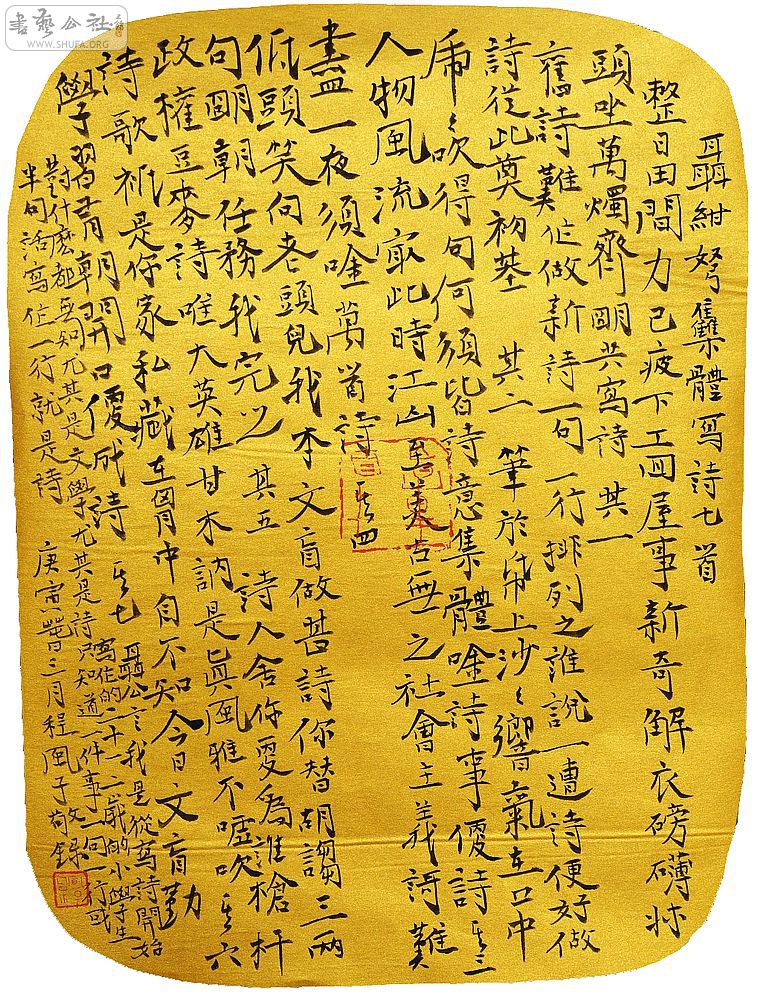 書藝公社
www.SHUFA.ORG
聶紺弩集體寫詩七首
整日田間力已疲下工回屋事新奇解衣磅礴牀
頭坐萬燭齊明共寫詩 其一
舊詩難作做新詩一句一行排列之誰說一遭詩便好做
詩從此奠初基 其二 筆於紙上沙沙響氣在口中
虎虎吹得句何須皆詩意集體唫詩事便詩 其三
人物風流㝡此時江山至美古無之社會主義詩難
盡一夜須唫萬首詩 其四
低頭笑向老頭兒我本文盲做甚詩你替胡謅三兩
句明朝任務我完之 其五 詩人舍你更為誰槍杆
政權豆麥詩唯大英雄甘木訥是真風雅不噓吹 其六
詩歌祇是你家私藏在胸中自不知今日文盲勤
學習有朝開口便成詩 其七 聶公言我是從寫詩開始
寫作的二十一二歲的小學生
對什麼都無知尤其是文學尤其是詩只知道一件事一句一行或
半句話寫作一行就是詩 庚寅春三月程風子敬錄